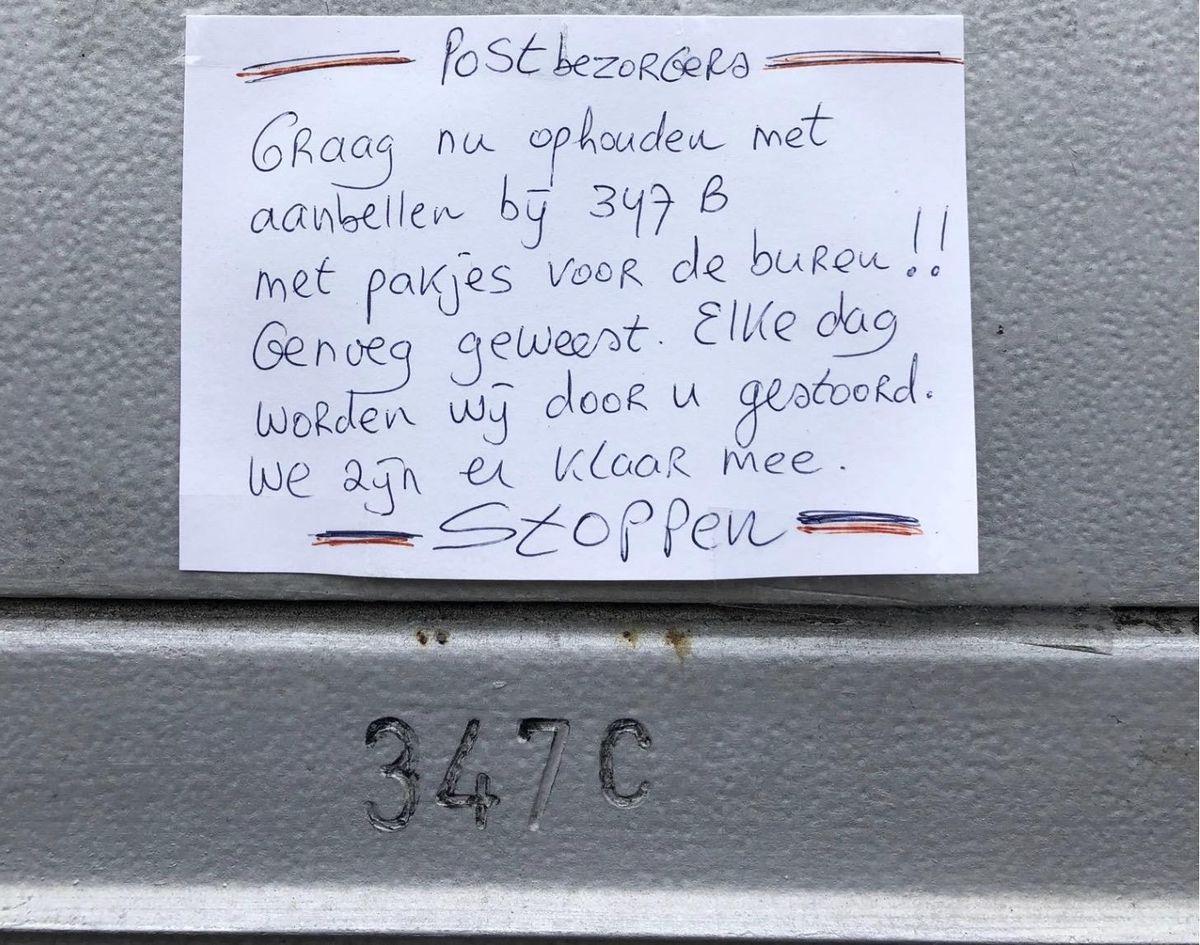 Postbezorgers
Graag nu ophouden met
aanbellen bij 347 B
met pakjes voor de buren!!
Genoeg geweest. Elke dag
worden wij door u gestoord.
We zijn er klaar mee.
Stoppen
347C